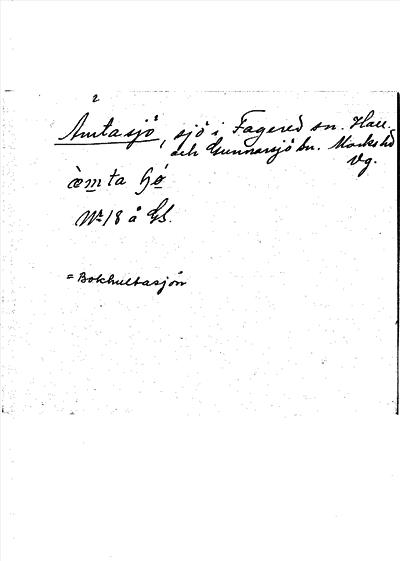 2
Amtasjö, sjö i Fagered sn. Hall.
och Gunnarsjö sn. Marks hd
Vg.
Nr 18 å GS.
= Bokhultasjön